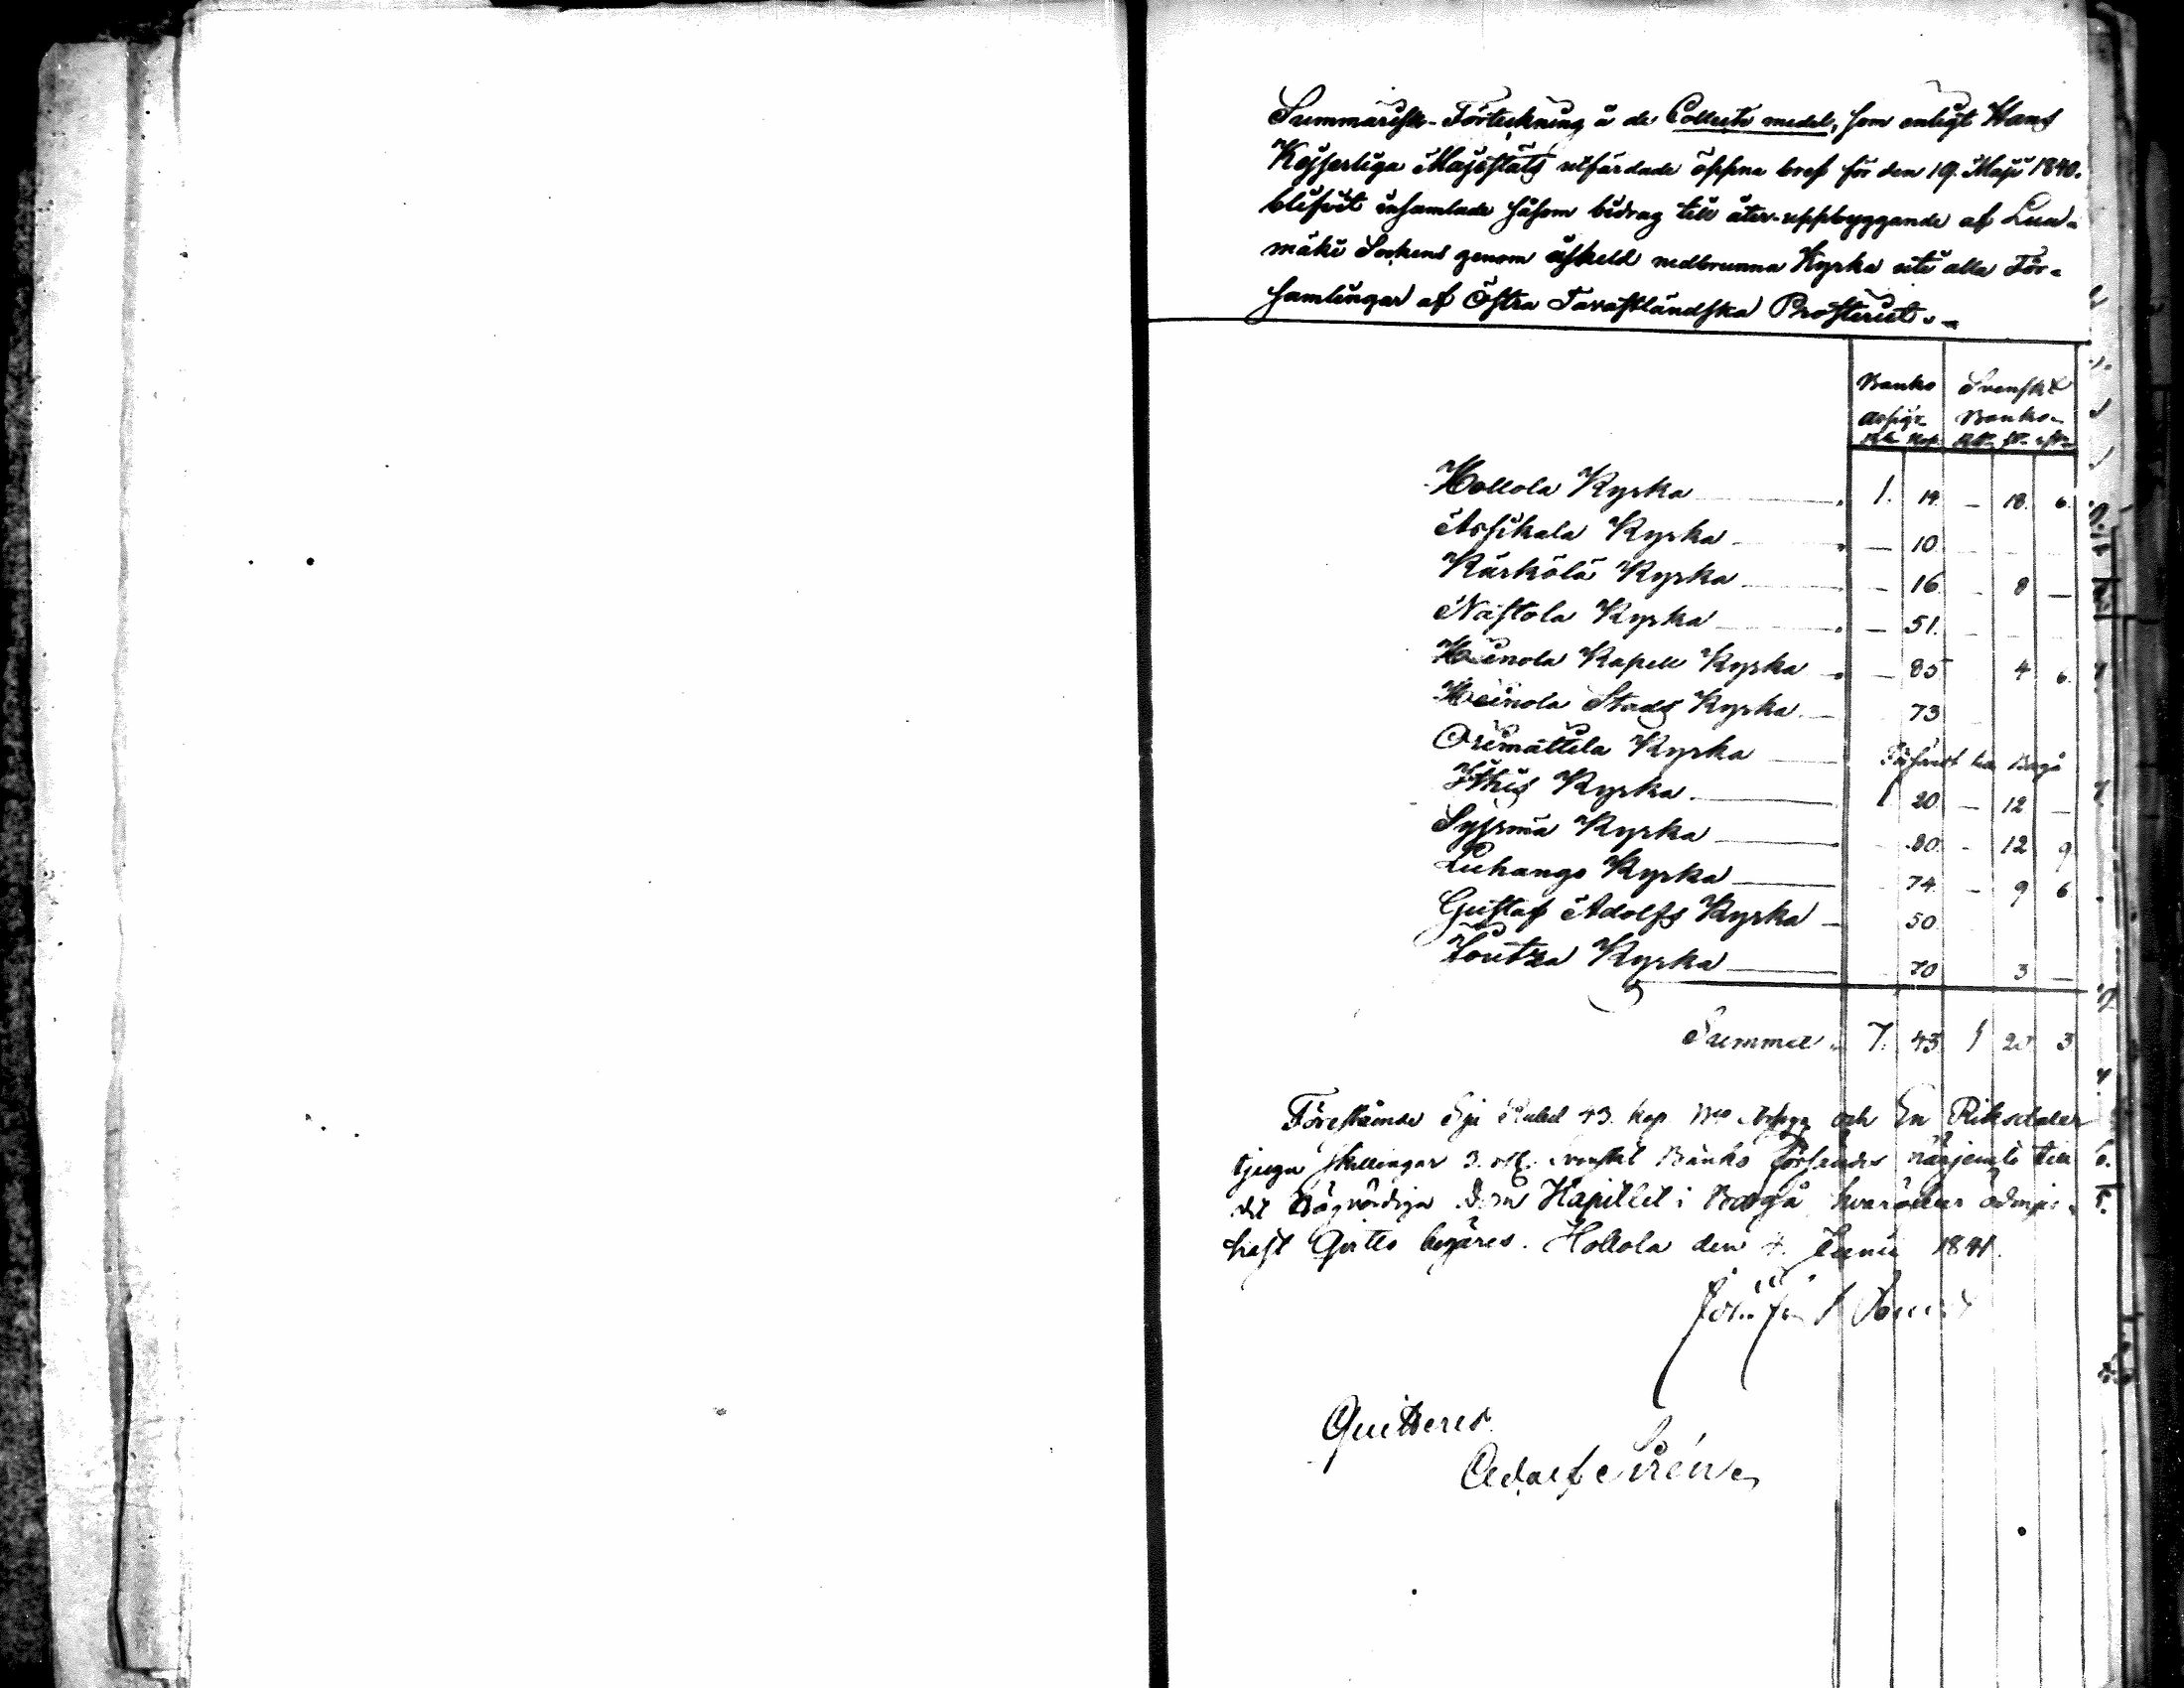 Summarisk Förteckning å de Collecte medel, som enligt Hans
Kejserliga Majestäts utfärdade öppna bref för den 19. Maji 1840.
blifvit insamlade såsom bidrag till åter-uppbyggande af Luu-
mäki Sockens genom åskeld nedbrunna Kyrka uti alla För-
samlingar af Östra Tavastländska Prosteriet.
Banko Svenskt
assign. Banko
Rb. Kop. Rd. sk. rst.
Hollola Kyrka 1. 14. - 18. 6.
Assikala Kyrka - 10
Kärkölä Kyrka - 16 - 8 -
Nastola Kyrka - 51.
Heinola Kapell Kyrka - 85 4 6.
Heinola Stads Kyrka 73
Orimattila Kyrka Borgå
Ithis Kyrka 1 20 - 12 -
Sysmä Kyrka 80. - 12 9
Luhango Kyrka 74. - 9 6
Gustaf Adolfs Kyrka 50
Joutza Kyrka 70 3 -
Summa 7. 43 1 20 3
Förestående Sju Rubel 43. kop. Bco Assign. och En Riksdaler
tjugu skillingar 3. rst. Svenskt Banko försändes härjemte till
det Högvördiga Dom Kapitlet i Borgå hvaröfver ödmju-
kast Qvitto begäres. Hollola den 4. Junii 1841.
Quitteres
Adolf Sirén